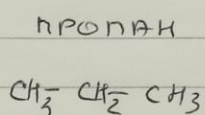 ПРОПАН
CH₃- CH₂- CH₃